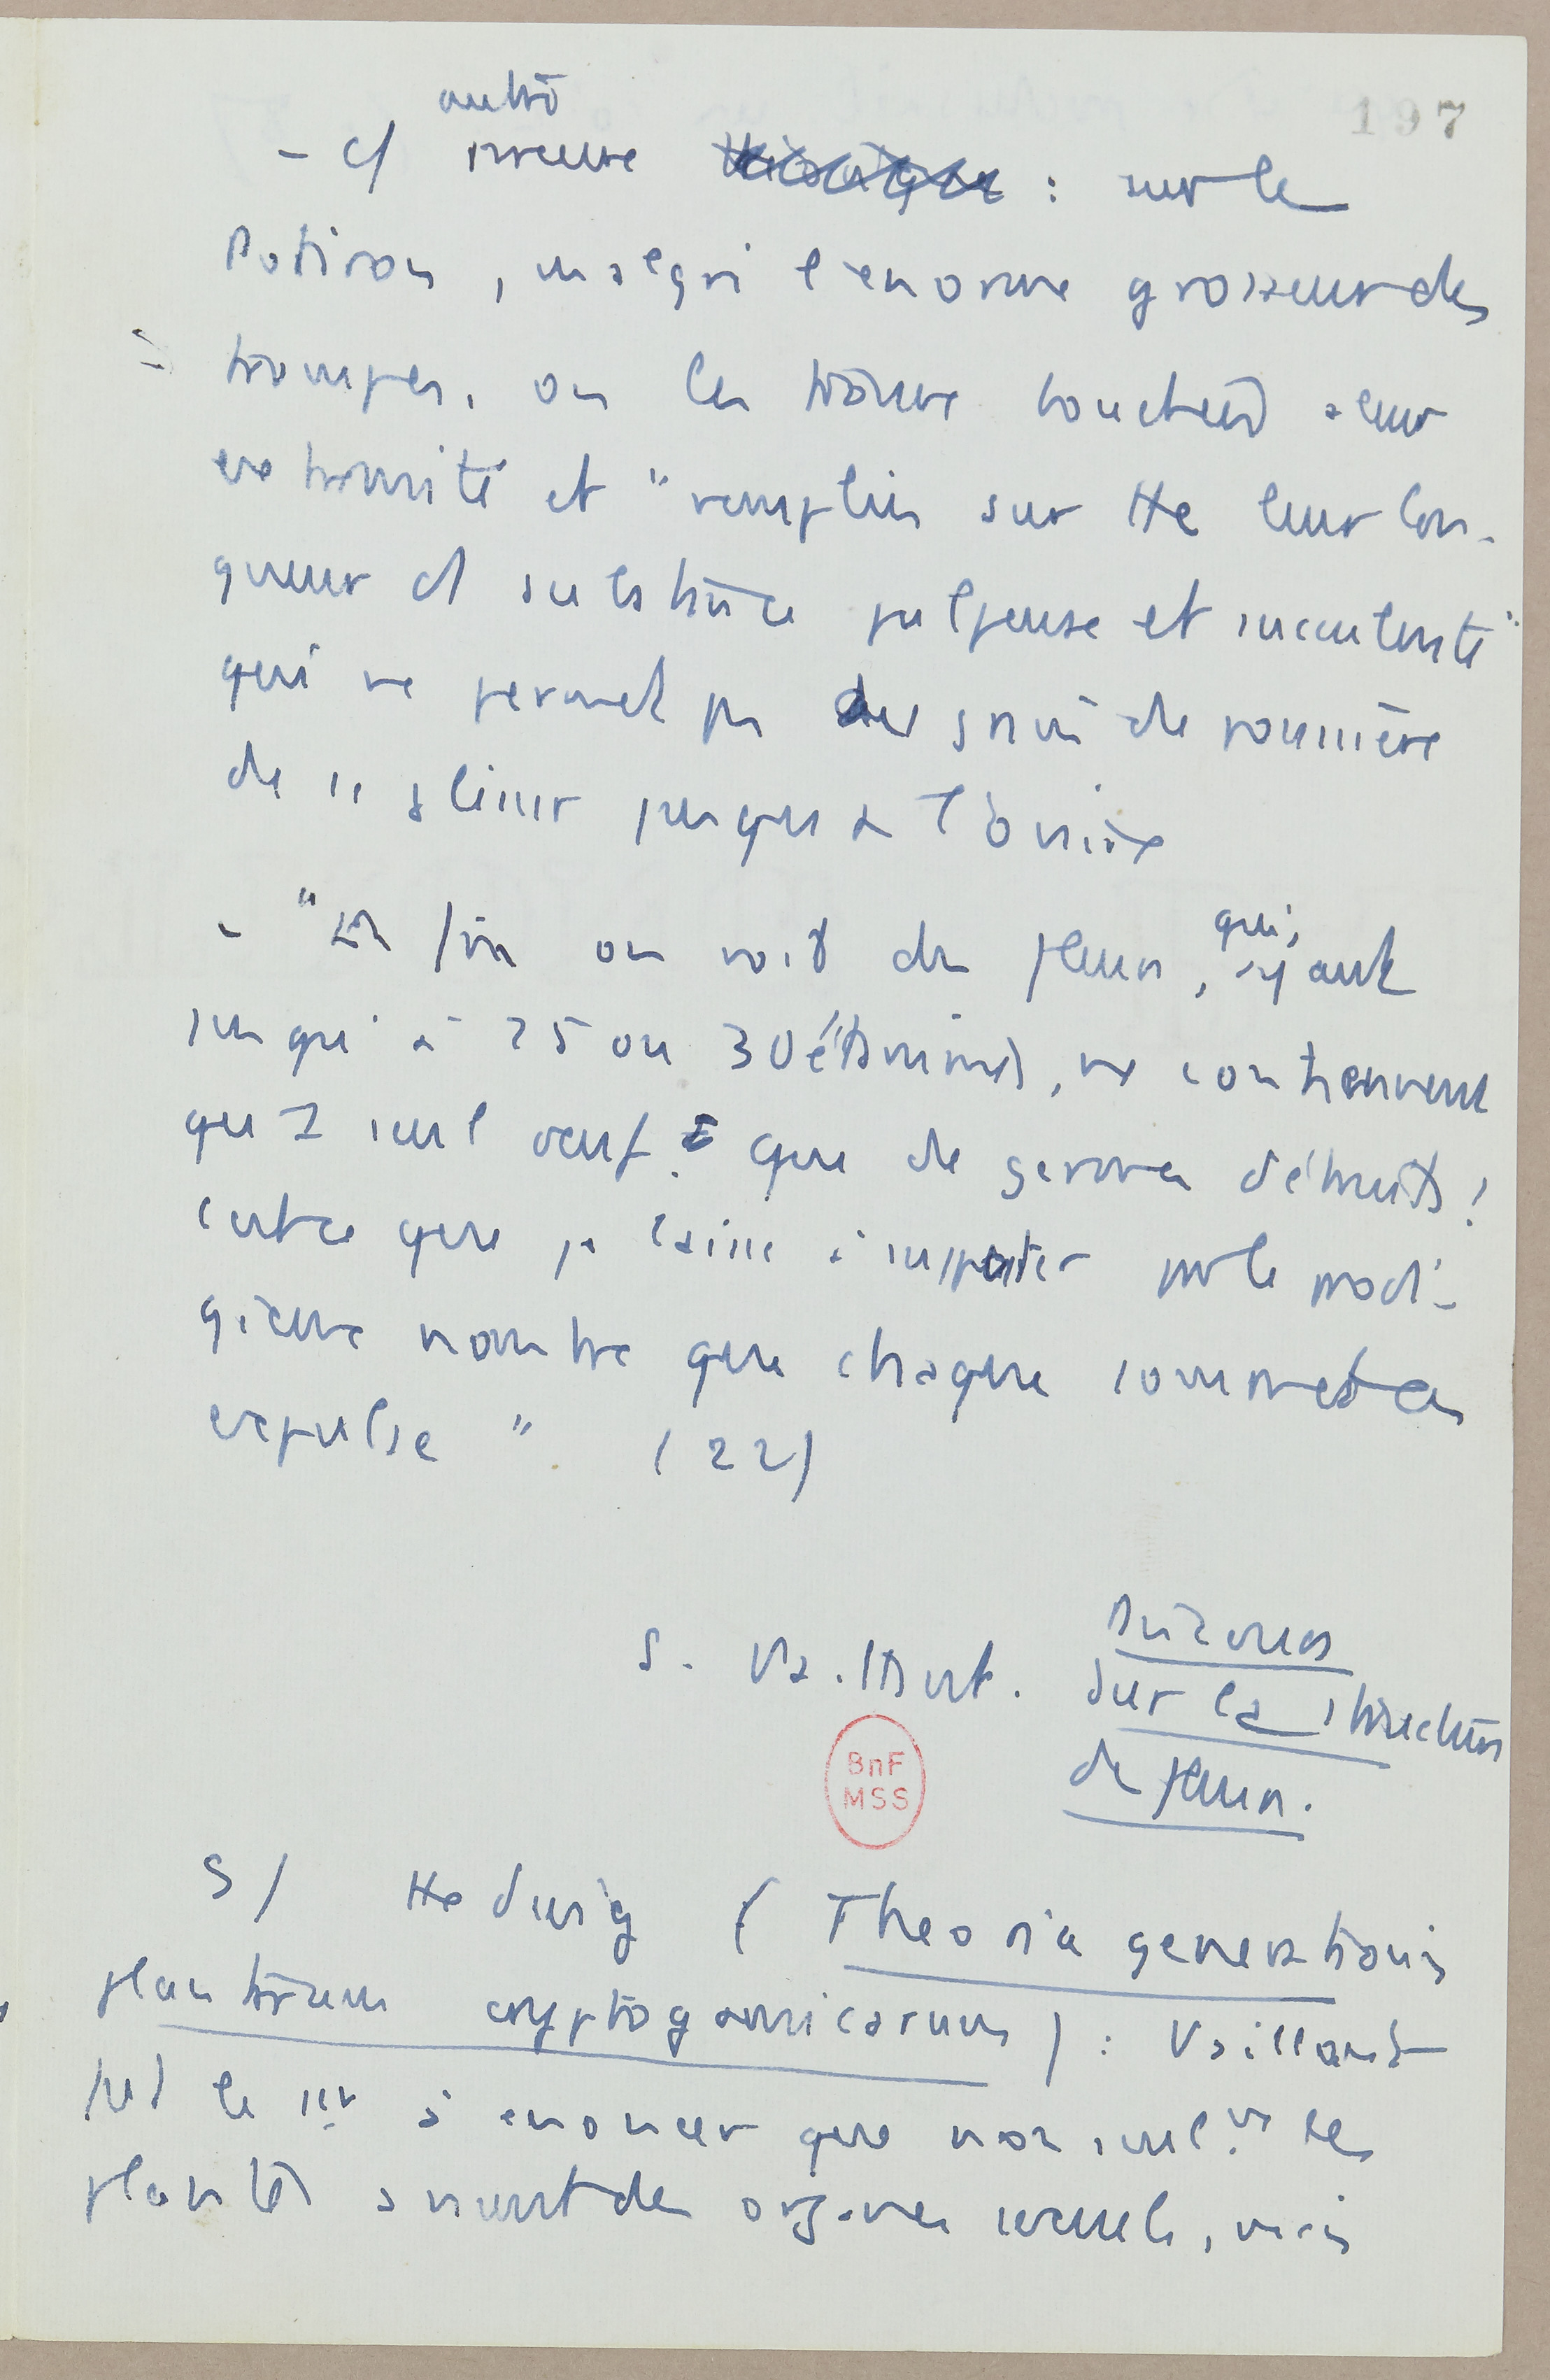 197
autre
- c/ preuve : sur le
Potiron, malgré l'enorme grosseur des
trompes, on les trouve bouchées a leur
extremité et "remplies sur tte leur lon-
gueur d substance pulpeuse et succulente"
qui ne permet pas aux grains de poussière
de se glisser jusqu'a l'ovaire
- "Enfin on voit des fleurs, qui, ayant
jusqu'à 25 ou 30 étamines, ne contiennent
qu'1 seul oeuf. que de germes détruits!
c'est ce que je laisse à supputer par le prodi-
gieux nombre que chaque sommet en
expulse". (22)
S. Vaillant. Discours
sur la structure
des fleurs.
5/ Hedwig (Theoria generationis
plantarum cryptogamicarum) : Vaillant
fut le 1er à enoncer que non seult les
plantes avaient des organes sexuels, mais
BnF
MSS